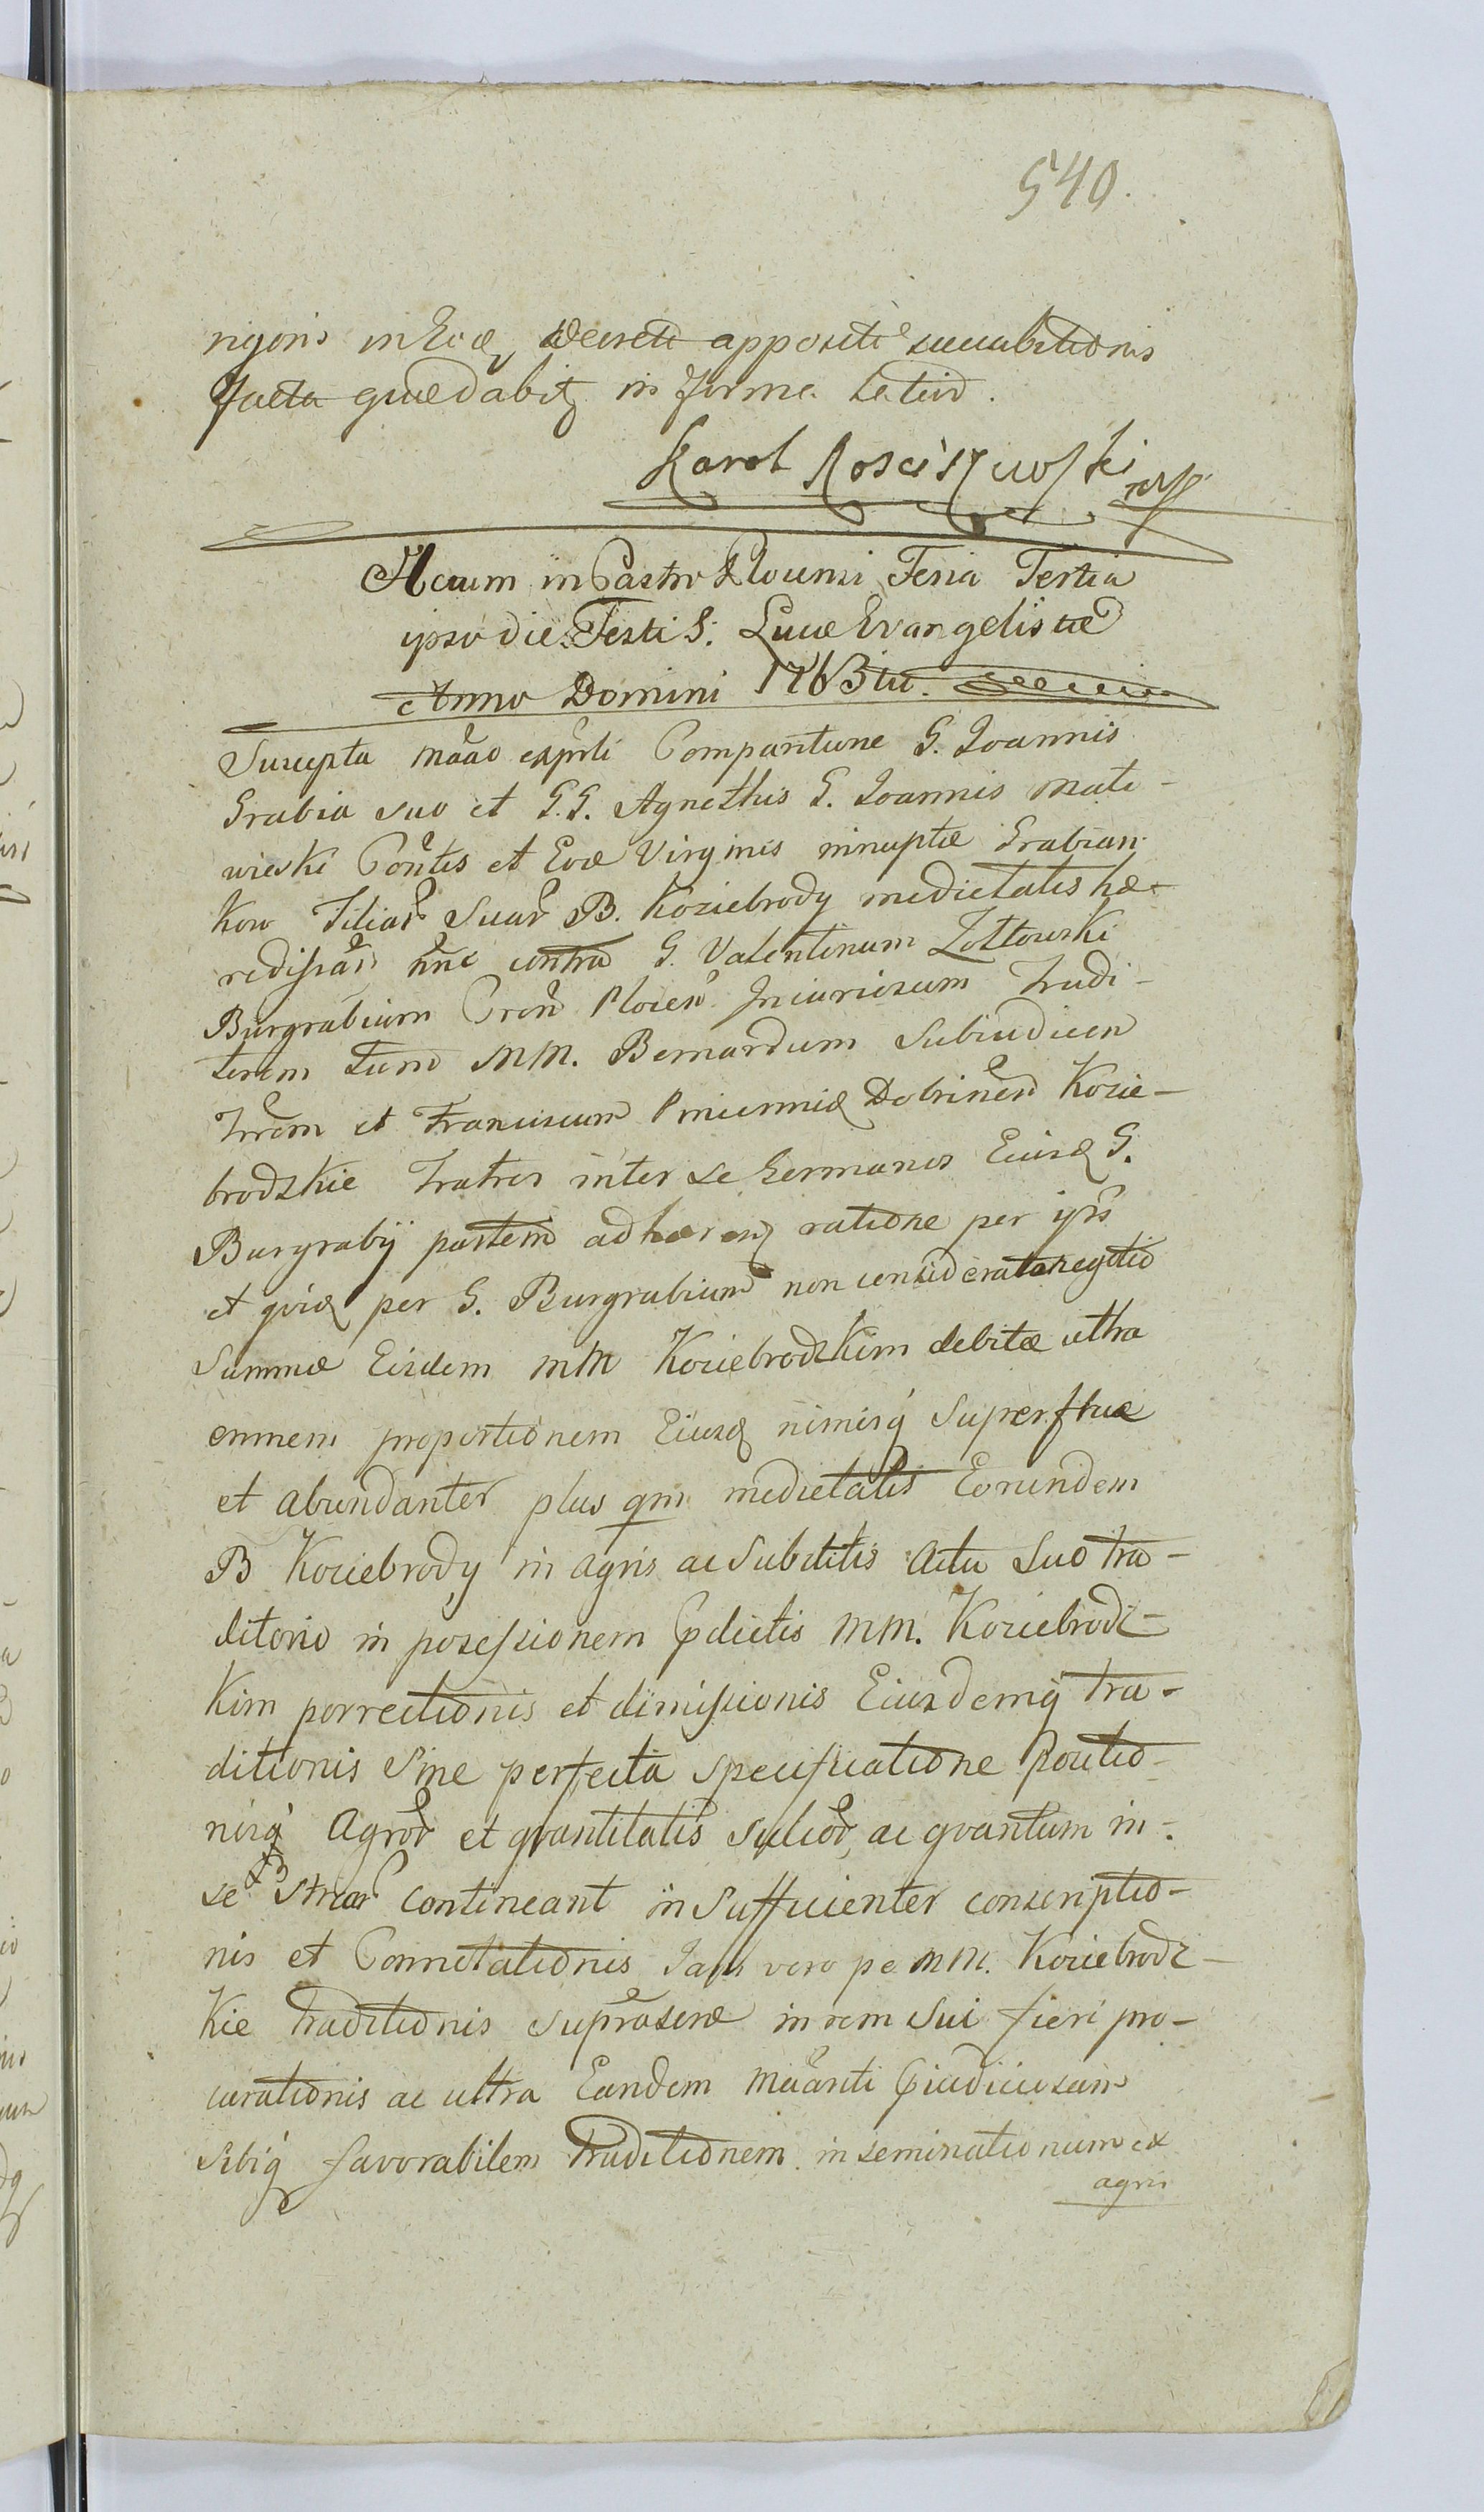 540.
rigoris in Eodq decreti appositi succubitionis
facta quaedabitq in forma Latiū.
Karol Rosciszewski mp
Actum in Castro Plocensi Feria Tertia
ipso die Festi S. Lucae Evangelistae
Anno Domini 1763tio.
Suscepta mãao exp̃rti Comparitione G. Joannis
Grabia suo et G.G. Agnethis G. Joannis Mate-
wieski Cõntis et Evae Virginis innuptae Grabian-
kow Filiar̃ Suar̃ B. Koziebrody medietatis hae-
redissar̃ hñc contra G. Valentinum Zołtowski
Burgrabium Cren̄ Plocen̄ Iniuriosum Tradi-
torem tum MM. Bernardum Subiudicen
Tr̃em et Franciscum Pincernidq Dobrinen̄ Kozie-
brodzkie Fratres inter se Germanos Eiusdq G.
Burgrabij partem adhaerenq ratione per ip̃s
et quidq per G. Burgrabium non considerato negotio
Summae Eisdem MM Koziebrodzkim debitae ultra
omnem proportionem Eiusdq nimisq́ Superfluae
et abundanter plus qm̄ medietatis Eorundem
B Koziebrody in agris ac Subditis actu Suo tra-
ditorio in possessionem Pdictis MM. Koziebrodz-
kim porrectionis et dimissionis Eiusdemq́ tra-
ditionis Sine perfecta Specificatione Portio-
nisq́ Agror̃ et quantitatis Sulcor̃, ac quantum in-
se B Struar̃ contineant in Sufficienter conscriptio-
nis et Connotationis Iaḿ vero pe MM. Koziebrodz-
kie traditionis suprãscrae in rem Sui fieri pro-
curationis ac ultra Eandem mãanti Piudiciosam
Sibiq́ favorabilem traditionem inseminationum ex
agris